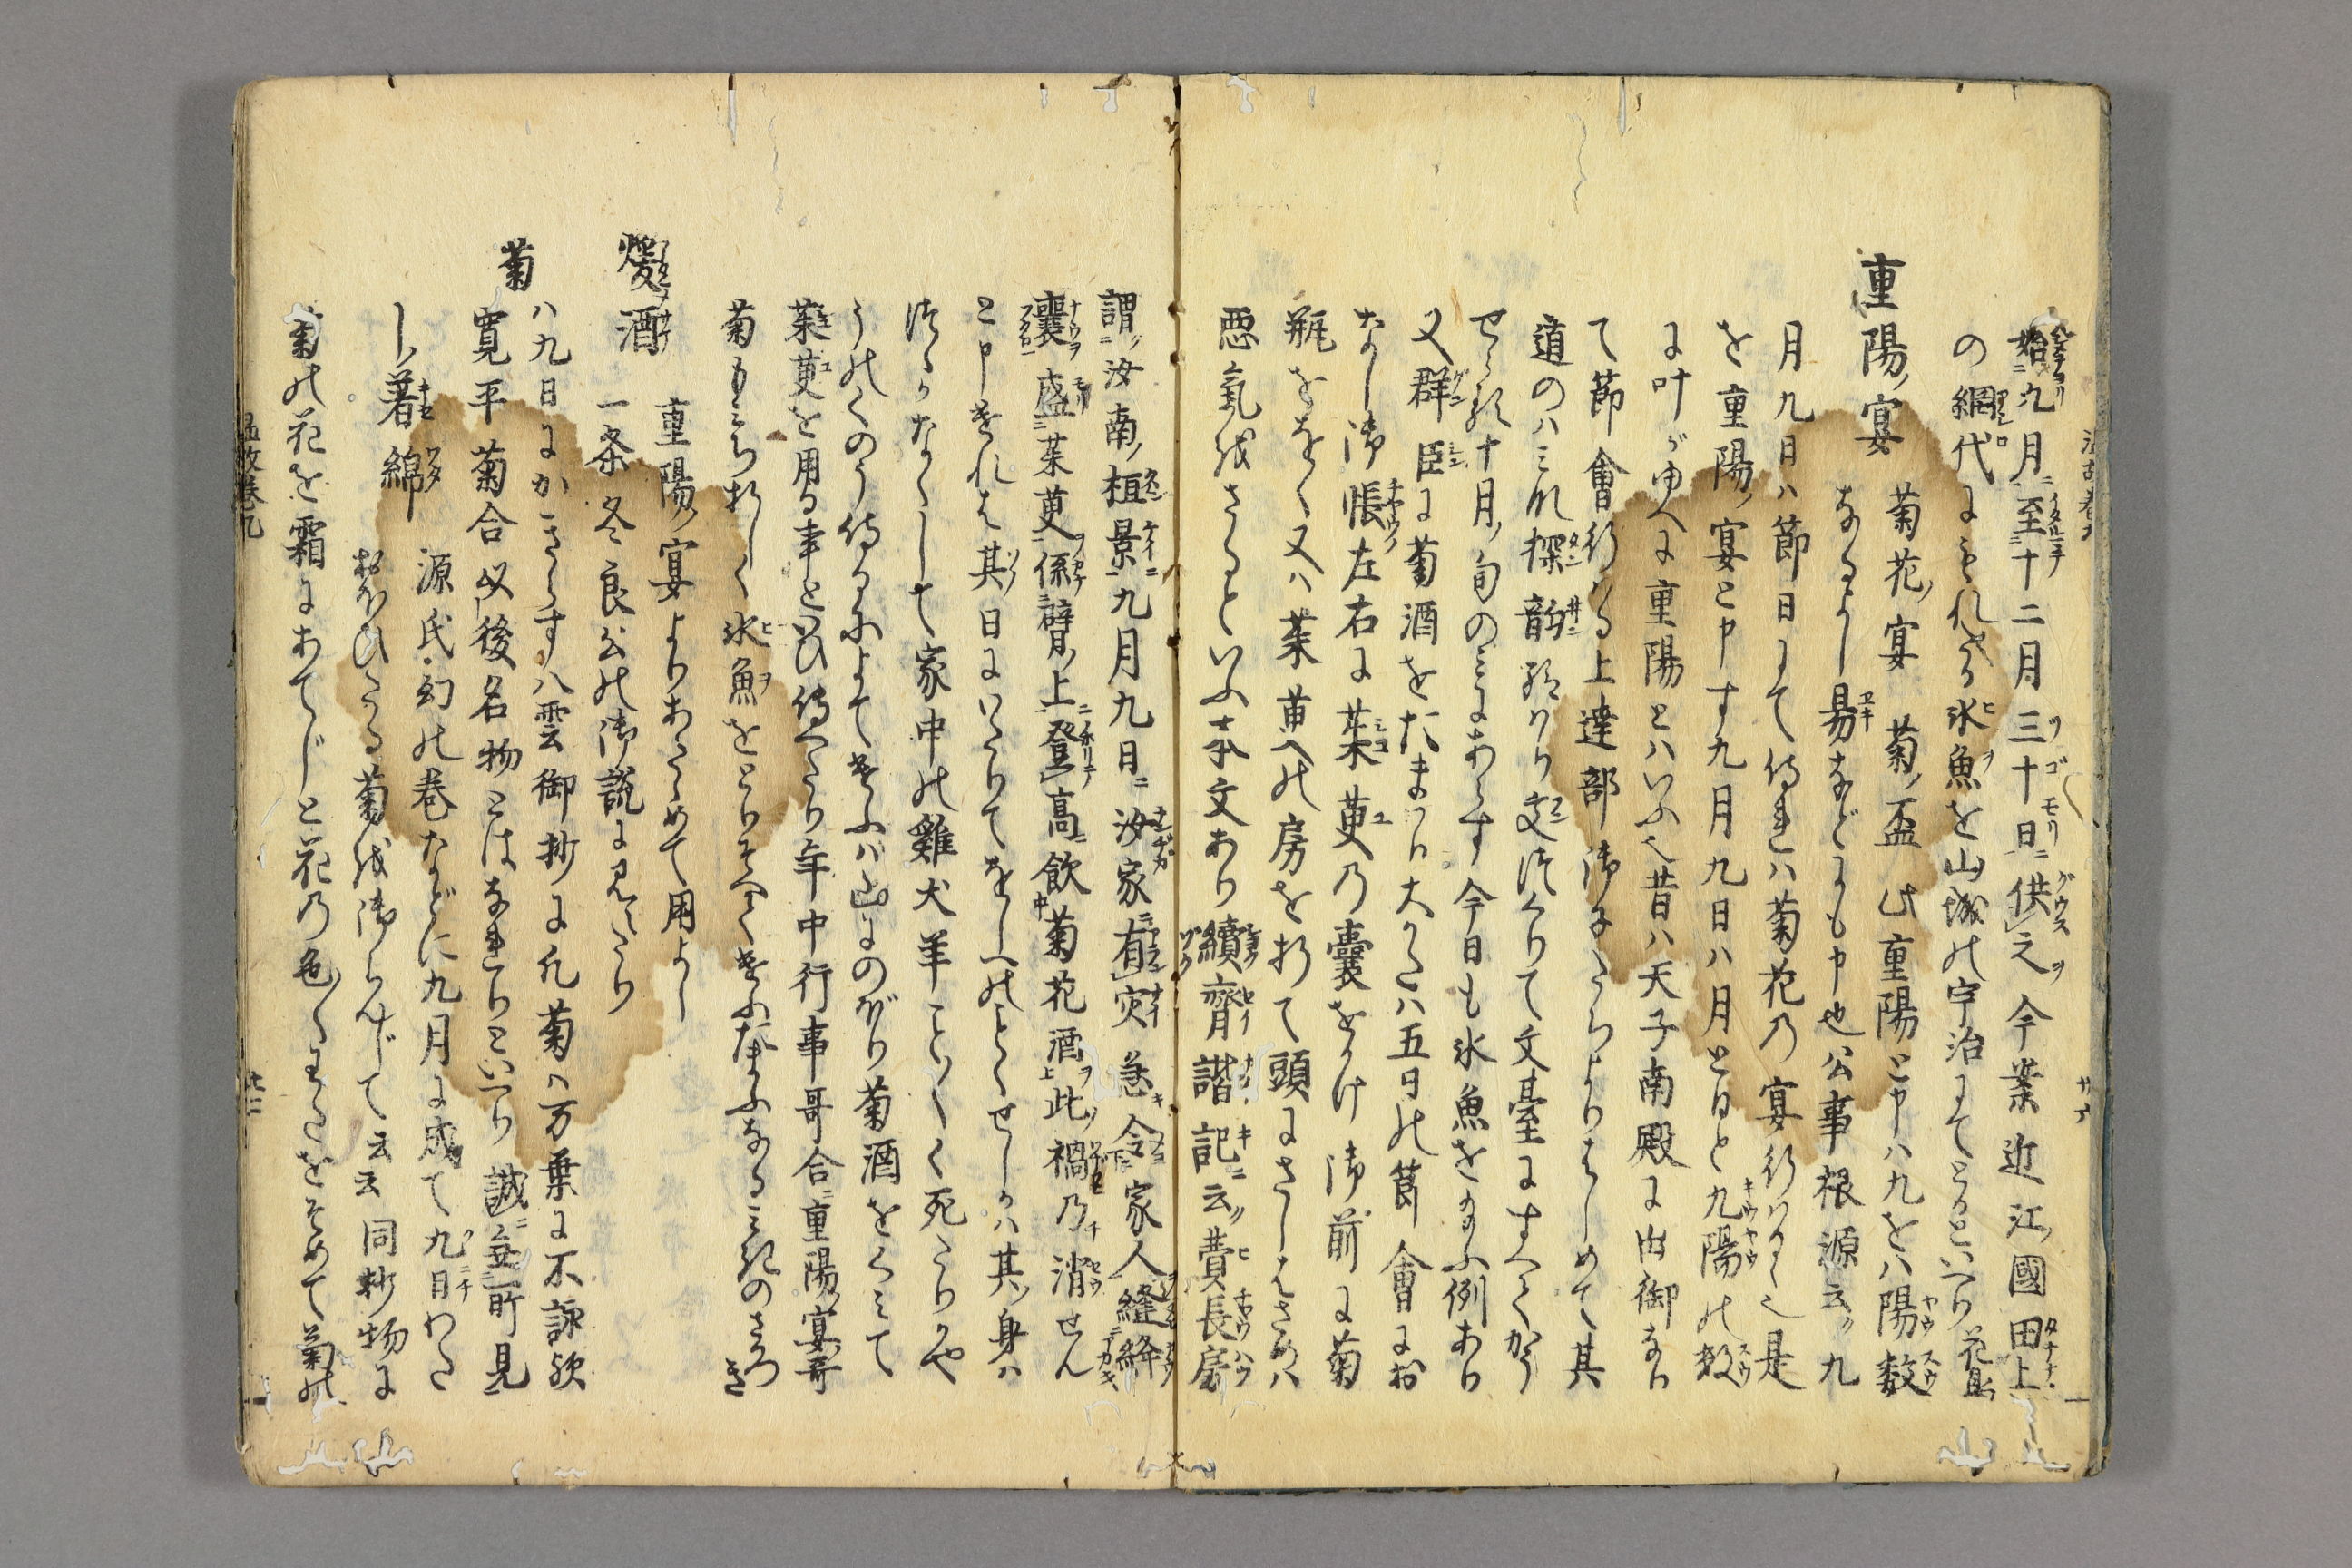 始九月至十二月三十日供之今業近江國田上
の網代にもれたる氷魚を山城の宇治にてとるといへり花鳥
重陽ノ宴 菊花ノ宴 菊ノ盃 此重陽と申ハ九をハ陽数
なるよし易などにも申也公事根源云九
月九日ハ節日にて侍れハ菊花の宴行はるゝ也是
を重陽ノ宴と申す九月九日ハ月と日と九陽の数
に叶がゆへに重陽とハいふ也昔ハ天子南殿に出御なり
て節會行ハる上達部御子たちよりはしめて其
道のハミな探韻給ハり文つくりて文臺にすへてかう
せらる十月ノ旬のことにあらす今日も氷魚を給ふ例あり
又群臣に菊酒をたまハり大かたハ五日の節會にお
なし御帳左右に茱萸の嚢をかけ御前に菊
瓶ををく又ハ茱萸の房を折て頭にさしはさめハ
悪氣をさるといふ本文あり續齊諧記云費長房
謂汝南ノ桓景九月九日汝家有災急令家人縫絳
嚢盛茱萸係臂ノ上登高飲菊花酒此禍乃消せん
と申けれは其日にいたりてをしへのことくせしかハ其身ハ
つゝかなくして家中の雞犬羊ことことく死たりとや
うけのう侍るによてけふハ山にのぼり菊酒をくミて
茱萸を用る事といひ侍へたり年中行事哥合重陽ノ宴哥
菊もミち折しく氷魚をとりそへてけふたまふなるミきのさかつき
煖酒 重陽ノ宴よりあたゝめて用よし
一条冬良公の御説に見へたり
菊 ハ九日にかきらす八雲御抄に凡菊ハ万葉に不詠歟
寛平菊合以後名物とはなれりといへり誠無所見
し 着綿 源氏幻の巻などに九月に成て九日わた
おほひたる菊を御らんじて云云同抄物に
菊の花を霜にあてじと花の色〳〵わたをそめて菊の